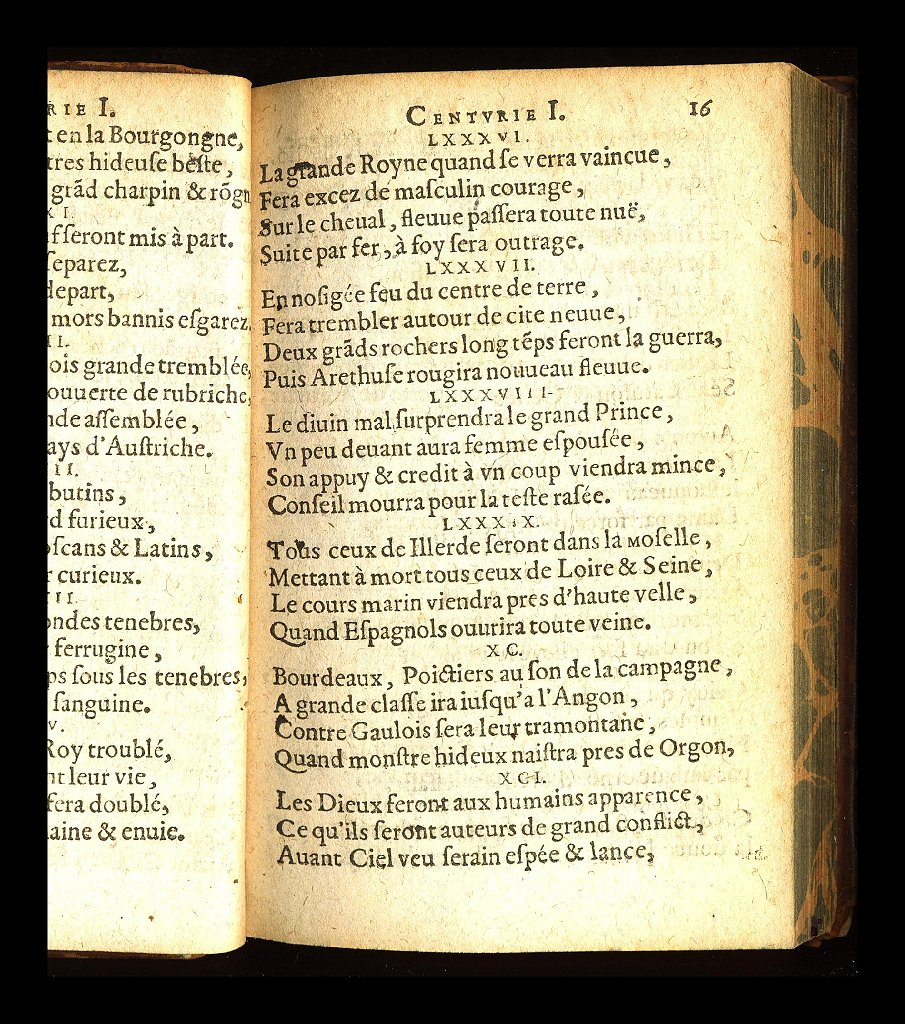 RIE I.
en la Bourgongne,
tres hideuſe beſte,
grãd charpin & rõgn
XI.
ſſeront mis à part.
ſeparez,
depart,
mors bannis eſgarez.
II.
ois grande tremblée,
ouuerte de rubriche,
nde aſſemblée,
ays d'Auſtriche.
II.
butins,
d furieux,
oſcans & Latins,
r curieux.
III.
ondes tenebres,
ferrugine,
ps ſous les tenebres,
ſanguine.
V.
Roy troublé,
nt leur vie,
ſera doublé,
laine & enuie.
CENTVRIE I. 16
LXXXVI.
La grande Royne quand ſe verra vaincue,
Fera excez de maſculin courage,
Sur le cheual, fleuue paſſera toute nuë,
Suite par fer, à foy ſera outrage.
LXXXVII.
En noſigée feu du centre de terre,
Fera trembler autour de cite neuue,
Deux grãds rochers long tẽps feront la guerra,
Puis Arethuſe rougira nouueau fleuue.
LXXXVIII.
Le diuin mal ſurprendra le grand Prince,
Vn peu deuant aura femme eſpouſée,
Son appuy & credit à vn coup viendra mince,
Conſeil mourra pour la teſte raſée.
LXXXIX.
Tous ceux de Illerde ſeront dans la Moſelle,
Mettant à mort tous ceux de Loire & Seine,
Le cours marin viendra pres d'haute velle,
Quand Eſpagnols ouurira toute veine.
XC.
Bourdeaux, Poictiers au ſon de la campagne,
A grande claſſe ira iuſqu'a l'Angon,
Contre Gaulois ſera leur tramontane,
Quand monſtre hideux naiſtra pres de Orgon,
XCI.
Les Dieux feront aux humains apparence,
Ce qu'ils ſeront auteurs de grand conflict,
Auant Ciel veu ſerain eſpée & lance,